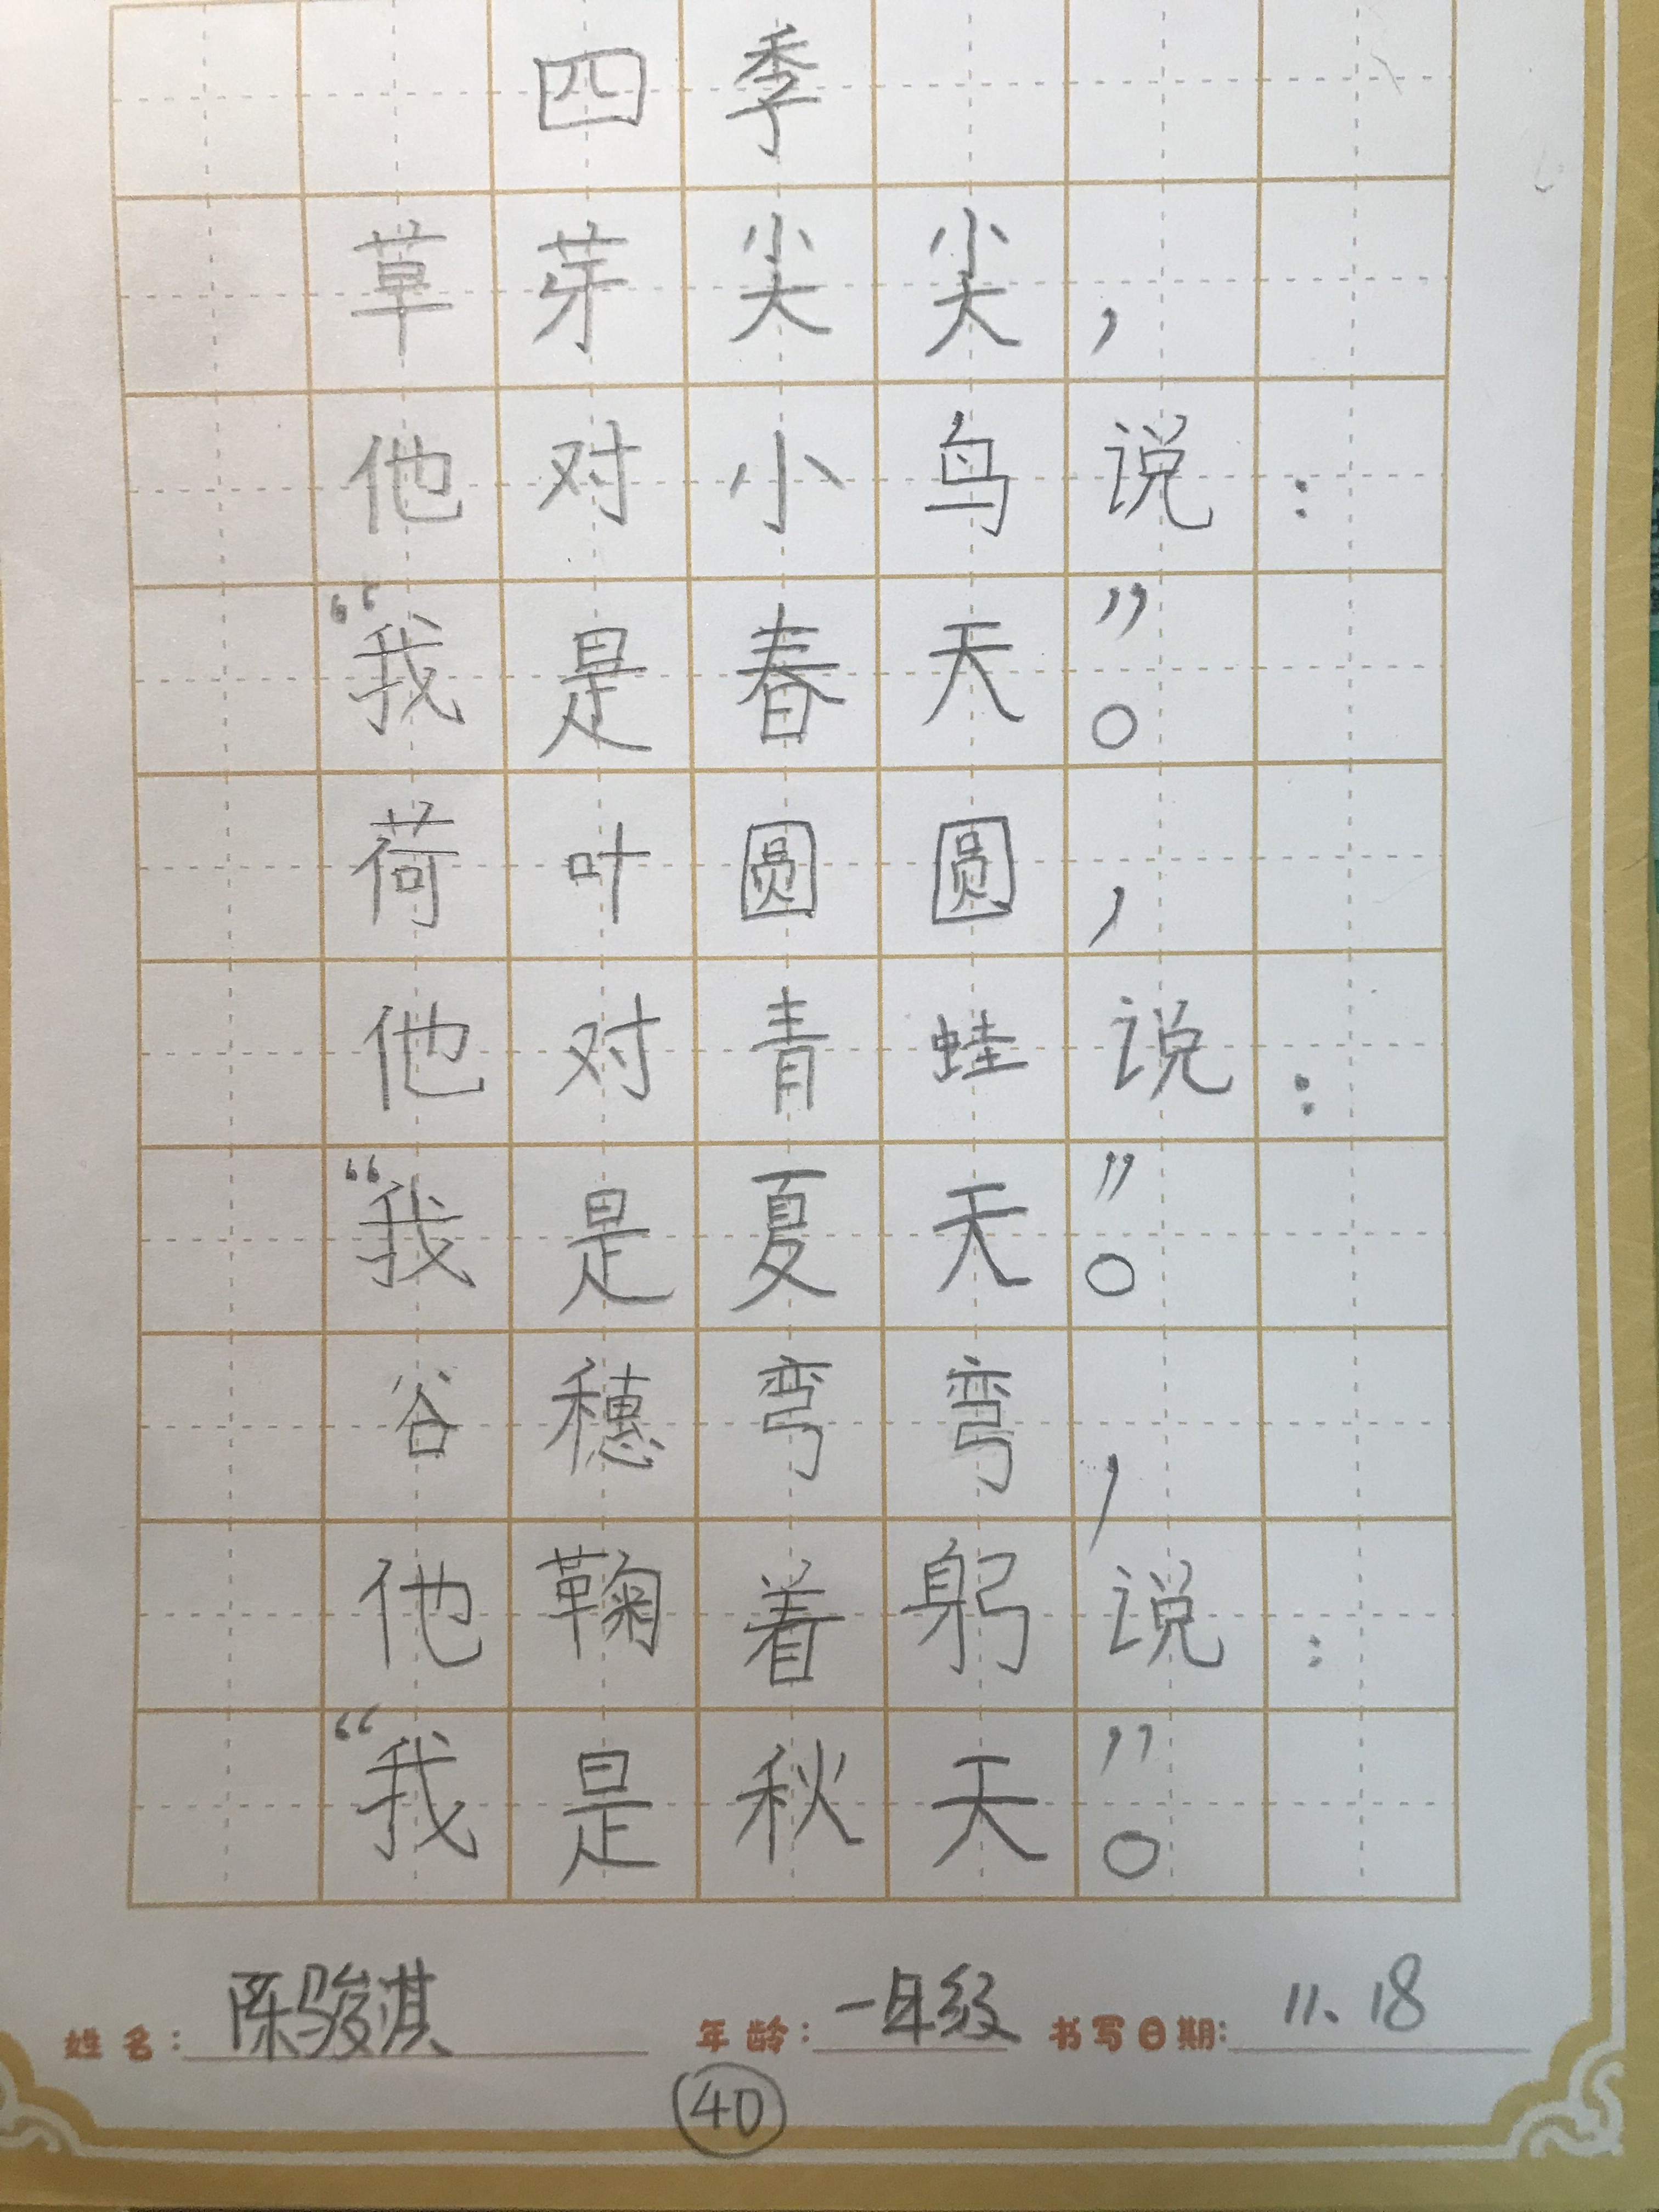 四季
草芽尖尖，
他对小鸟说：
“我是春天”。
荷叶圆圆，
他对青蛙说：
“我是夏天”。
谷穗弯弯，
他鞠着躬说：
“我是秋天”。
姓名：陈骏淇 年龄：一年级 书写日期：11.18
40